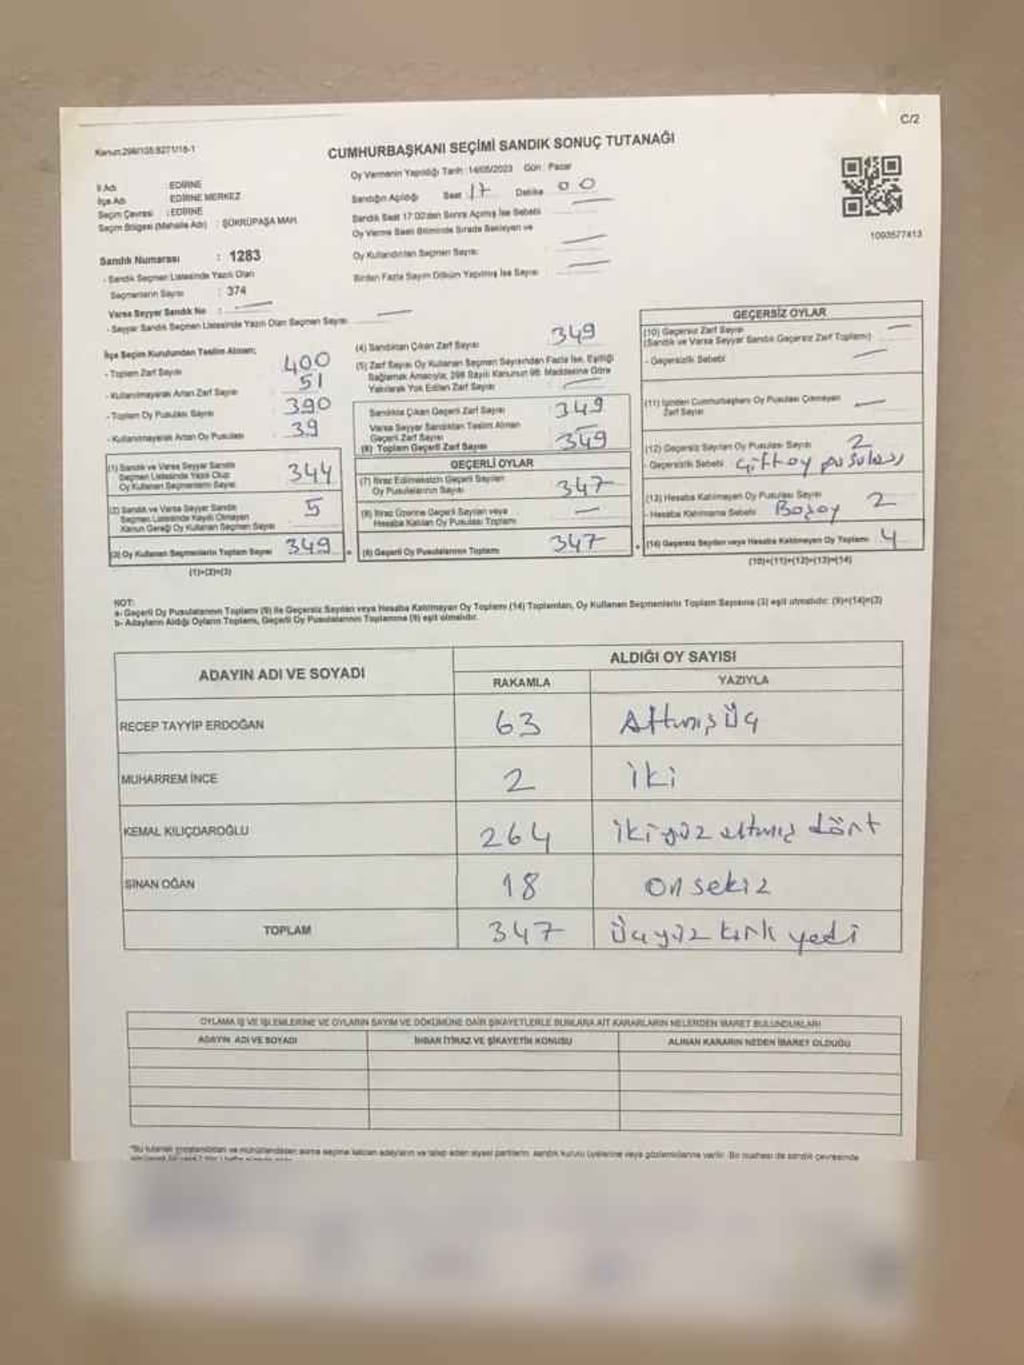 C/2
Kanun:298/105:6271/18-1
CUMHURBAŞKANI SEÇİMİ SANDIK SONUÇ TUTANAĞI
Oy Vermenin Yapıldığı Tarih :14/05/2023 Gün : Pazar
İl Adı : EDİRNE
İlçe Adı : EDİRNE MERKEZ
Seçim Çevresi : EDİRNE
Seçim Bölgesi (Mahalle Adı) : ŞÜKRÜPAŞA MAH.
Sandığın Açıldığı Saat 17 Dakika 00
Sandık Saat 17:00'den Sonra Açılmış İse Sebebi
Oy Verme Saati Bitiminde Sırada Bekleyen ve
Oy Kullandırılan Seçmen Sayısı
Birden Fazla Sayım Döküm Yapılmış İse Sayısı
1093577413
Sandık Numarası : 1283
- Sandık Seçmen Listesinde Yazılı Olan
Seçmenlerin Sayısı : 374
Varsa Seyyar Sandık No :
- Seyyar Sandık Seçmen Listesinde Yazılı Olan Seçmen Sayısı
İlçe Seçim Kurulundan Teslim Alınan;
- Toplam Zarf Sayısı 400
- Kullanılmayarak Artan Zarf Sayısı 51
- Toplam Oy Pusulası Sayısı 390
- Kullanılmayarak Artan Oy Pusulası 39
(1) Sandık ve Varsa Seyyar Sandık
Seçmen Listesinde Yazılı Olup
Oy Kullanan Seçmenlerin Sayısı 344
(2) Sandık ve Varsa Seyyar Sandık
Seçmen Listesinde Kayıtlı Olmayan
Kanun Gereği Oy Kullanan Seçmen Sayısı 5
(3) Oy Kullanan Seçmenlerin Toplam Sayısı 349
(1)+(2)=(3)
(4) Sandıktan Çıkan Zarf Sayısı 349
(5) Zarf Sayısı Oy Kullanan Seçmen Sayısından Fazla İse, Eşitliği
Sağlamak Amacıyla, 298 Sayılı Kanunun 98. Maddesine Göre
Yakılarak Yok Edilen Zarf Sayısı
Sandıkta Çıkan Geçerli Zarf Sayısı 349
Varsa Seyyar Sandıktan Teslim Alınan
Geçerli Zarf Sayısı
(6) Toplam Geçerli Zarf Sayısı 349
GEÇERLİ OYLAR
(7) İtiraz Edilmeksizin Geçerli Sayılan
Oy Pusulalarının Sayısı 347
(8) İtiraz Üzerine Geçerli Sayılan veya
Hesaba Katılan Oy Pusulası Toplamı
(9) Geçerli Oy Pusulalarının Toplamı 347
GEÇERSİZ OYLAR
(10) Geçersiz Zarf Sayısı
(Sandık ve Varsa Seyyar Sandık Geçersiz Zarf Toplamı)
- Geçersizlik Sebebi
(11) İçinden Cumhurbaşkanı Oy Pusulası Çıkmayan
Zarf Sayısı
(12) Geçersiz Sayılan Oy Pusulası Sayısı 2
- Geçersizlik Sebebi Çift oy pusulası
(13) Hesaba Katılmayan Oy Pusulası Sayısı 2
- Hesaba Katılmama Sebebi Boş oy
(14) Geçersiz Sayılan veya Hesaba Katılmayan Oy Toplamı 4
(10)+(11)+(12)+(13)=(14)
NOT:
a- Geçerli Oy Pusulalarının Toplamı (9) ile Geçersiz Sayılan veya Hesaba Katılmayan Oy Toplamı (14) Toplamları, Oy Kullanan Seçmenlerin Toplam Sayısına (3) eşit olmalıdır. (9)+(14)=(3)
b- Adayların Aldığı Oyların Toplamı, Geçerli Oy Pusulalarının Toplamına (9) eşit olmalıdır.
ADAYIN ADI VE SOYADI ALDIĞI OY SAYISI
RAKAMLA YAZIYLA
RECEP TAYYİP ERDOĞAN 63 Altmış üç
MUHARREM İNCE 2 iki
KEMAL KILIÇDAROĞLU 264 iki yüz altmış dört
SİNAN OĞAN 18 on sekiz
TOPLAM 347 Üç yüz kırk yedi
OYLAMA İŞ VE İŞLEMLERİNE VE OYLARIN SAYIM VE DÖKÜMÜNE DAİR ŞİKAYETLERLE BUNLARA AİT KARARLARIN NELERDEN İBARET BULUNDUKLARI
ADAYIN ADI VE SOYADI İHBAR İTİRAZ VE ŞİKAYETİN KONUSU ALINAN KARARIN NEDEN İBARET OLDUĞU